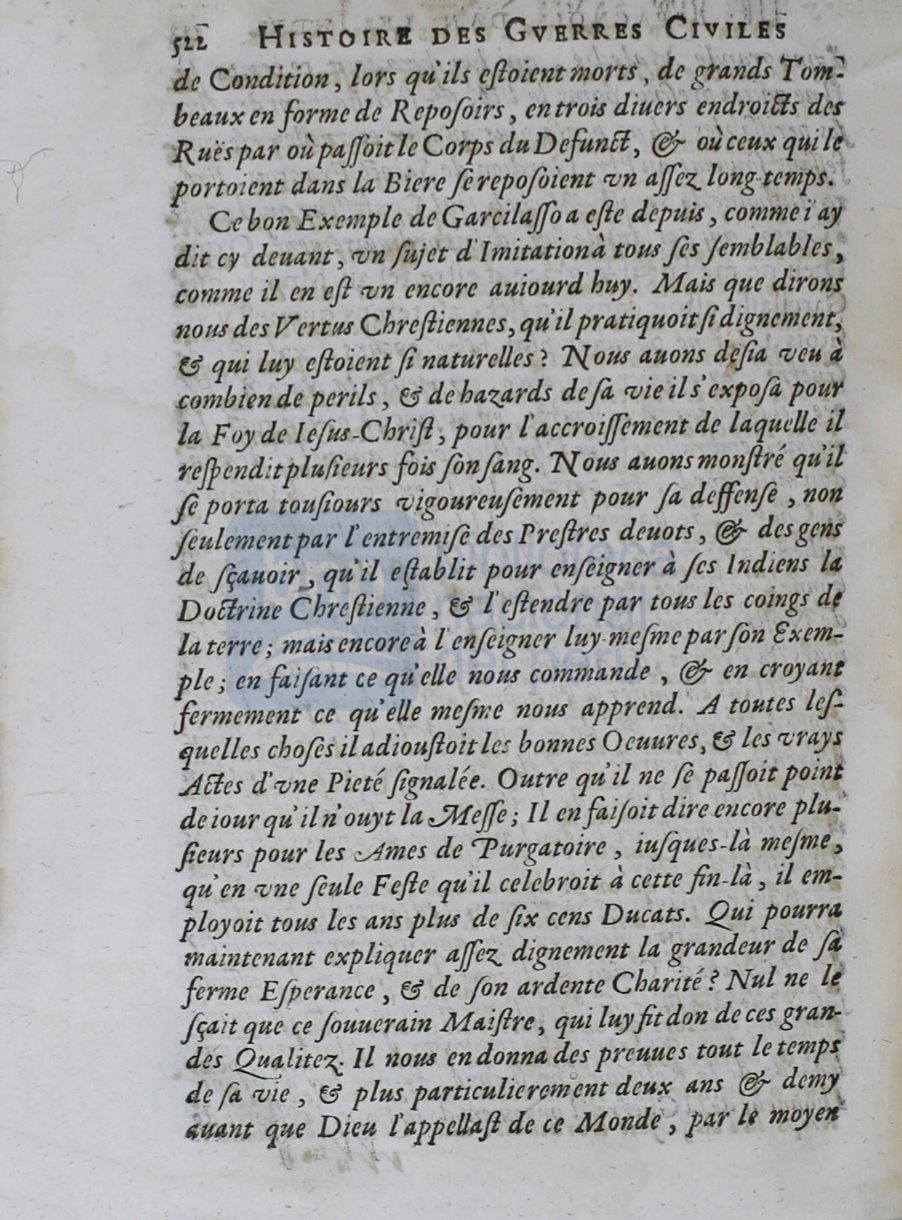 522 HISTOIRE DES GVERRES CIVILES
de Condition, lors qu'ils eſtoient morts, de grands Tom-
beaux en forme de Repoſoirs, en trois diuers endroicts des
Ruës par où paſſoit le Corps du Defunct, & où ceux qui le
portoient dans la Biere ſe repoſoient vn aſſez long-temps.
Ce bon Exemple de Garcilaſſo a eſte depuis, comme i'ay
dit cy deuant, vn ſujet d'Imitation à tous ſes ſemblables,
comme il en eſt vn encore auiourd'huy. Mais que dirons
nous des Vertus Chreſtiennes, qu'il pratiquoit ſi dignement,
& qui luy eſtoient ſi naturelles? Nous auons deſia veu à
combien de perils, & de hazards de ſa vie il s'expoſa pour
la Foy de Ieſus-Chriſt, pour l'accroiſſement de laquelle il
reſpendit pluſieurs fois ſon ſang. Nous auons monſtré qu'il
ſe porta touſiours vigoureuſement pour ſa deffenſe, non
ſeulement par l'entremiſe des Preſtres deuots, & des gens
de ſçauoir, qu'il eſtablit pour enſeigner à ſes Indiens la
Doctrine Chreſtienne, & l'eſtendre par tous les coings de
la terre; mais encore à l'enſeigner luy-meſme par ſon Exem-
ple; en faiſant ce qu'elle nous commande, & en croyant
fermement ce qu'elle meſme nous apprend. A toutes leſ-
quelles choſes il adiouſtoit les bonnes Oeuures, & les vrays
Actes d'vne Pieté ſignalée. Outre qu'il ne ſe paſſoit point
de iour qu'il n'ouyt la Meſſe; Il en faiſoit dire encore plu-
ſieurs pour les Ames de Purgatoire, iuſques-là meſme,
qu'en vne ſeule Feſte qu'il celebroit à cette fin-là, il em-
ployoit tous les ans plus de ſix cens Ducats. Qui pourra
maintenant expliquer aſſez dignement la grandeur de ſa
ferme Eſperance, & de ſon ardente Charité? Nul ne le
ſçait que ce ſouuerain Maiſtre, qui luy fit don de ces gran-
des Qualitez. Il nous en donna des preuues tout le temps
de ſa vie, & plus particulierement deux ans & demy
auant que Dieu l'appellaſt de ce Monde, par le moyen